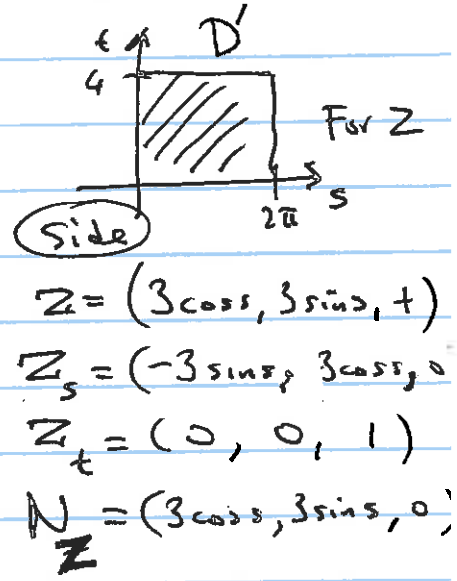 D'
t
4
For Z
s
2π
Side
Z = (3 cos s, 3 sin s, t)
Z_s = (-3 sin s, 3 cos s, 0
Z_t = (0, 0, 1)
N_Z = (3 cos s, 3 sin s, 0)